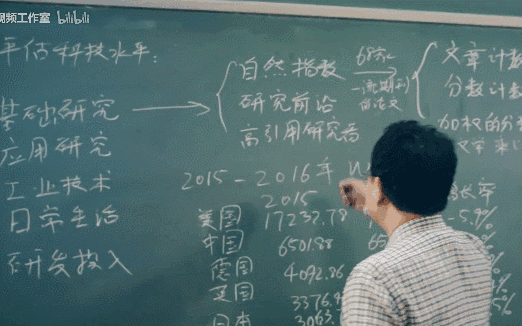 视频工作室 bilibili
评估科技水平：
基础研究
应用研究
工业技术
日常生活
研发投入
自然指数
研究前沿
高引用研究者
68种
一流期刊
的论文
文章计数
分数计数
60种的分
2015-2016年
2015
长率
美国 17232.78 -5.9%
中国 6501.88
德国 4092.86
英国 3376.
日本 3063.